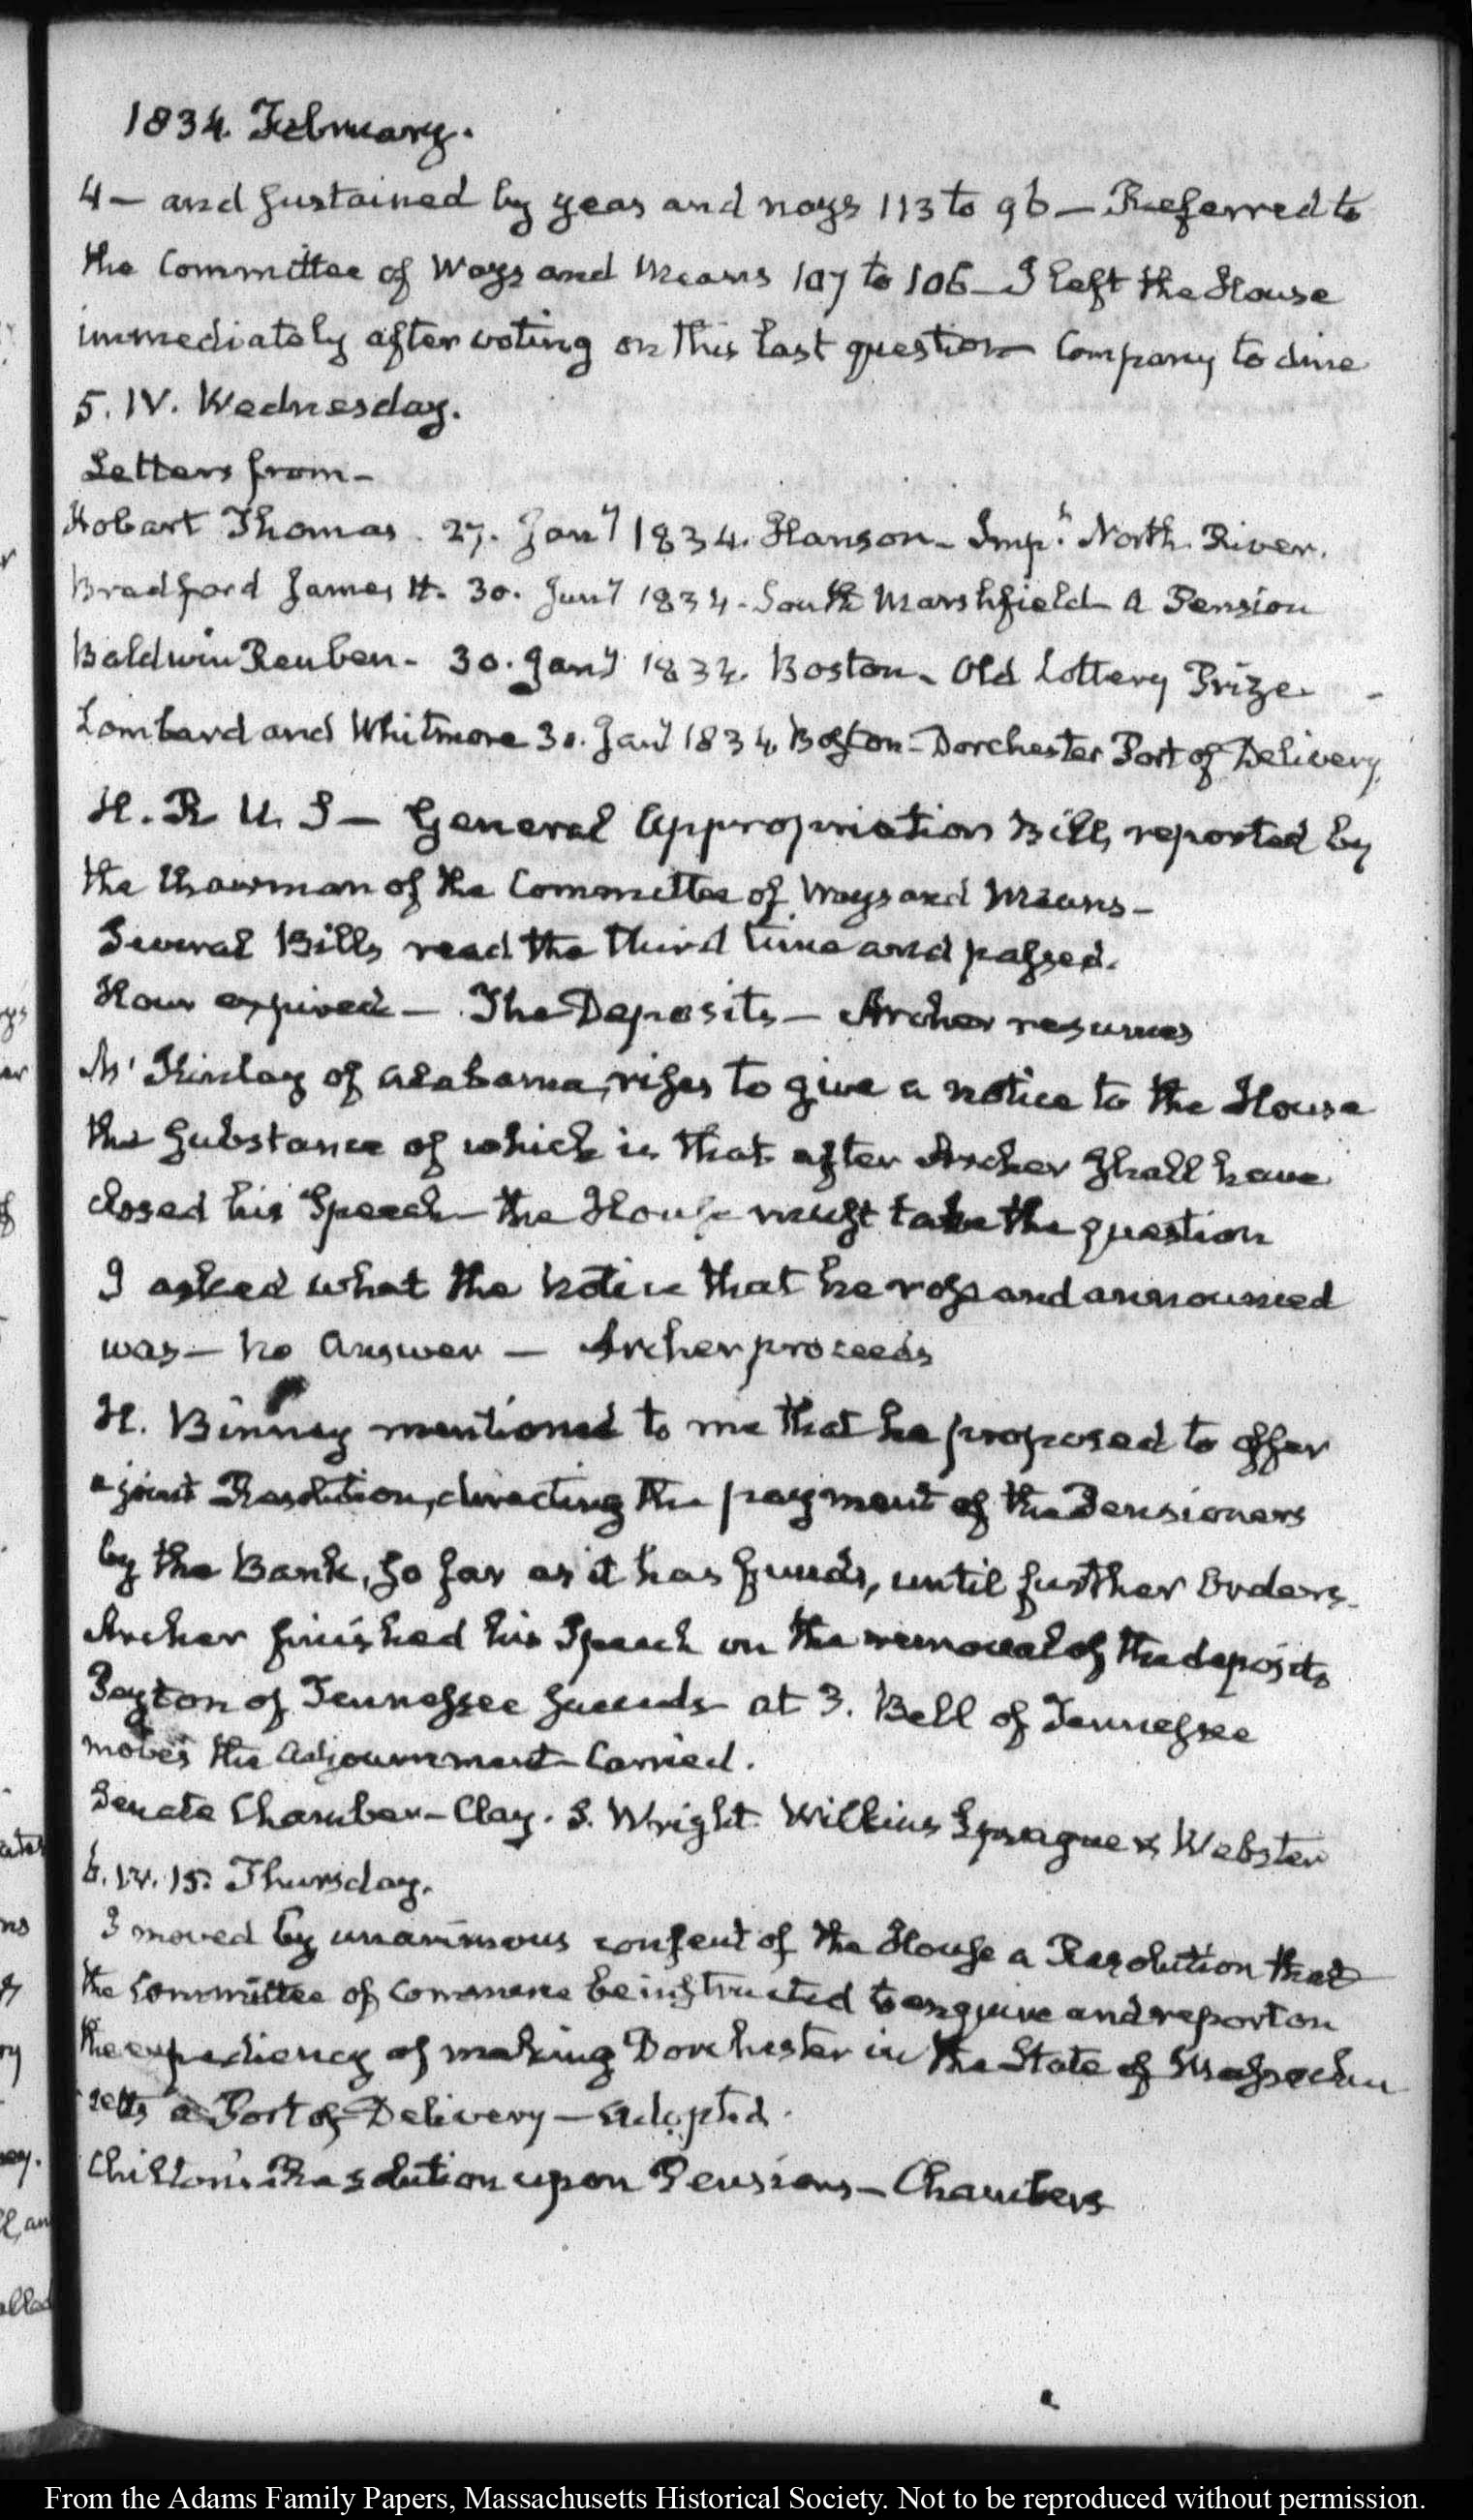 1834. February.
4 — and sustained by yeas and nays 113 to 96 — Referred to
the Committee of Ways and Means 107 to 106 — I left the House
immediately after voting on this last question Company to dine
5. IV. Wednesday.
Letters from —
Hobart Thomas. 27. Jany 1834. Hanson — Impt North River.
Bradford James H. 30. Jany 1834. South Marshfield A Pension
Baldwin Reuben — 30. Jany 1834. Boston — Old Lottery Prize
Lombard and Whitmore 30. Jany 1834. Boston — Dorchester Port of Delivery.
H. R U. S — General Appropriation Bill, reported by
the Chairman of the Committee of Ways and Means —
Several Bills read the third time and passed.
Hour expired — The Deposits — Archer resumes
McKinlay of Alabama, rises to give a notice to the House
the substance of which is that after Archer shall have
closed his Speech — the House must take the question
I asked what the notice that he rose and announced
was — no answer — Archer proceeds
H. Binney mentioned to me that he proposed to offer
a joint Resolution, directing the payment of the Pensioners
by the Bank, so far as it has funds, until further Orders.
Archer finished his Speech on the removal of the deposits
Peyton of Tennessee succeeds at 3. Bell of Tennessee
moves the adjournment — Carried.
Senate Chamber — Clay. S. Wright Wilkins Sprague & Webster
6. IV. 15. Thursday.
I moved by unanimous consent of the House a Resolution that
the Committee of Commerce be instructed to enquire and report on
the expediency of making Dorchester in the State of Massachu
setts a Port of Delivery — adopted.
Chilton's Resolution upon Pensions — Chambers
From the Adams Family Papers, Massachusetts Historical Society. Not to be reproduced without permission.